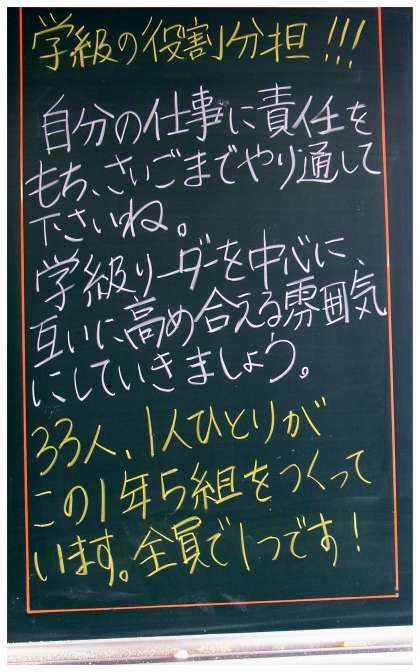 学級の役割分担!!!
自分の仕事に責任を
もち、さいごまでやり通して
下さいね。
学級リーダーを中心に、
互いに高め合える雰囲気
にしていきましょう。
33人、1人ひとりが
この1年5組をつくって
います。全員で1つです!